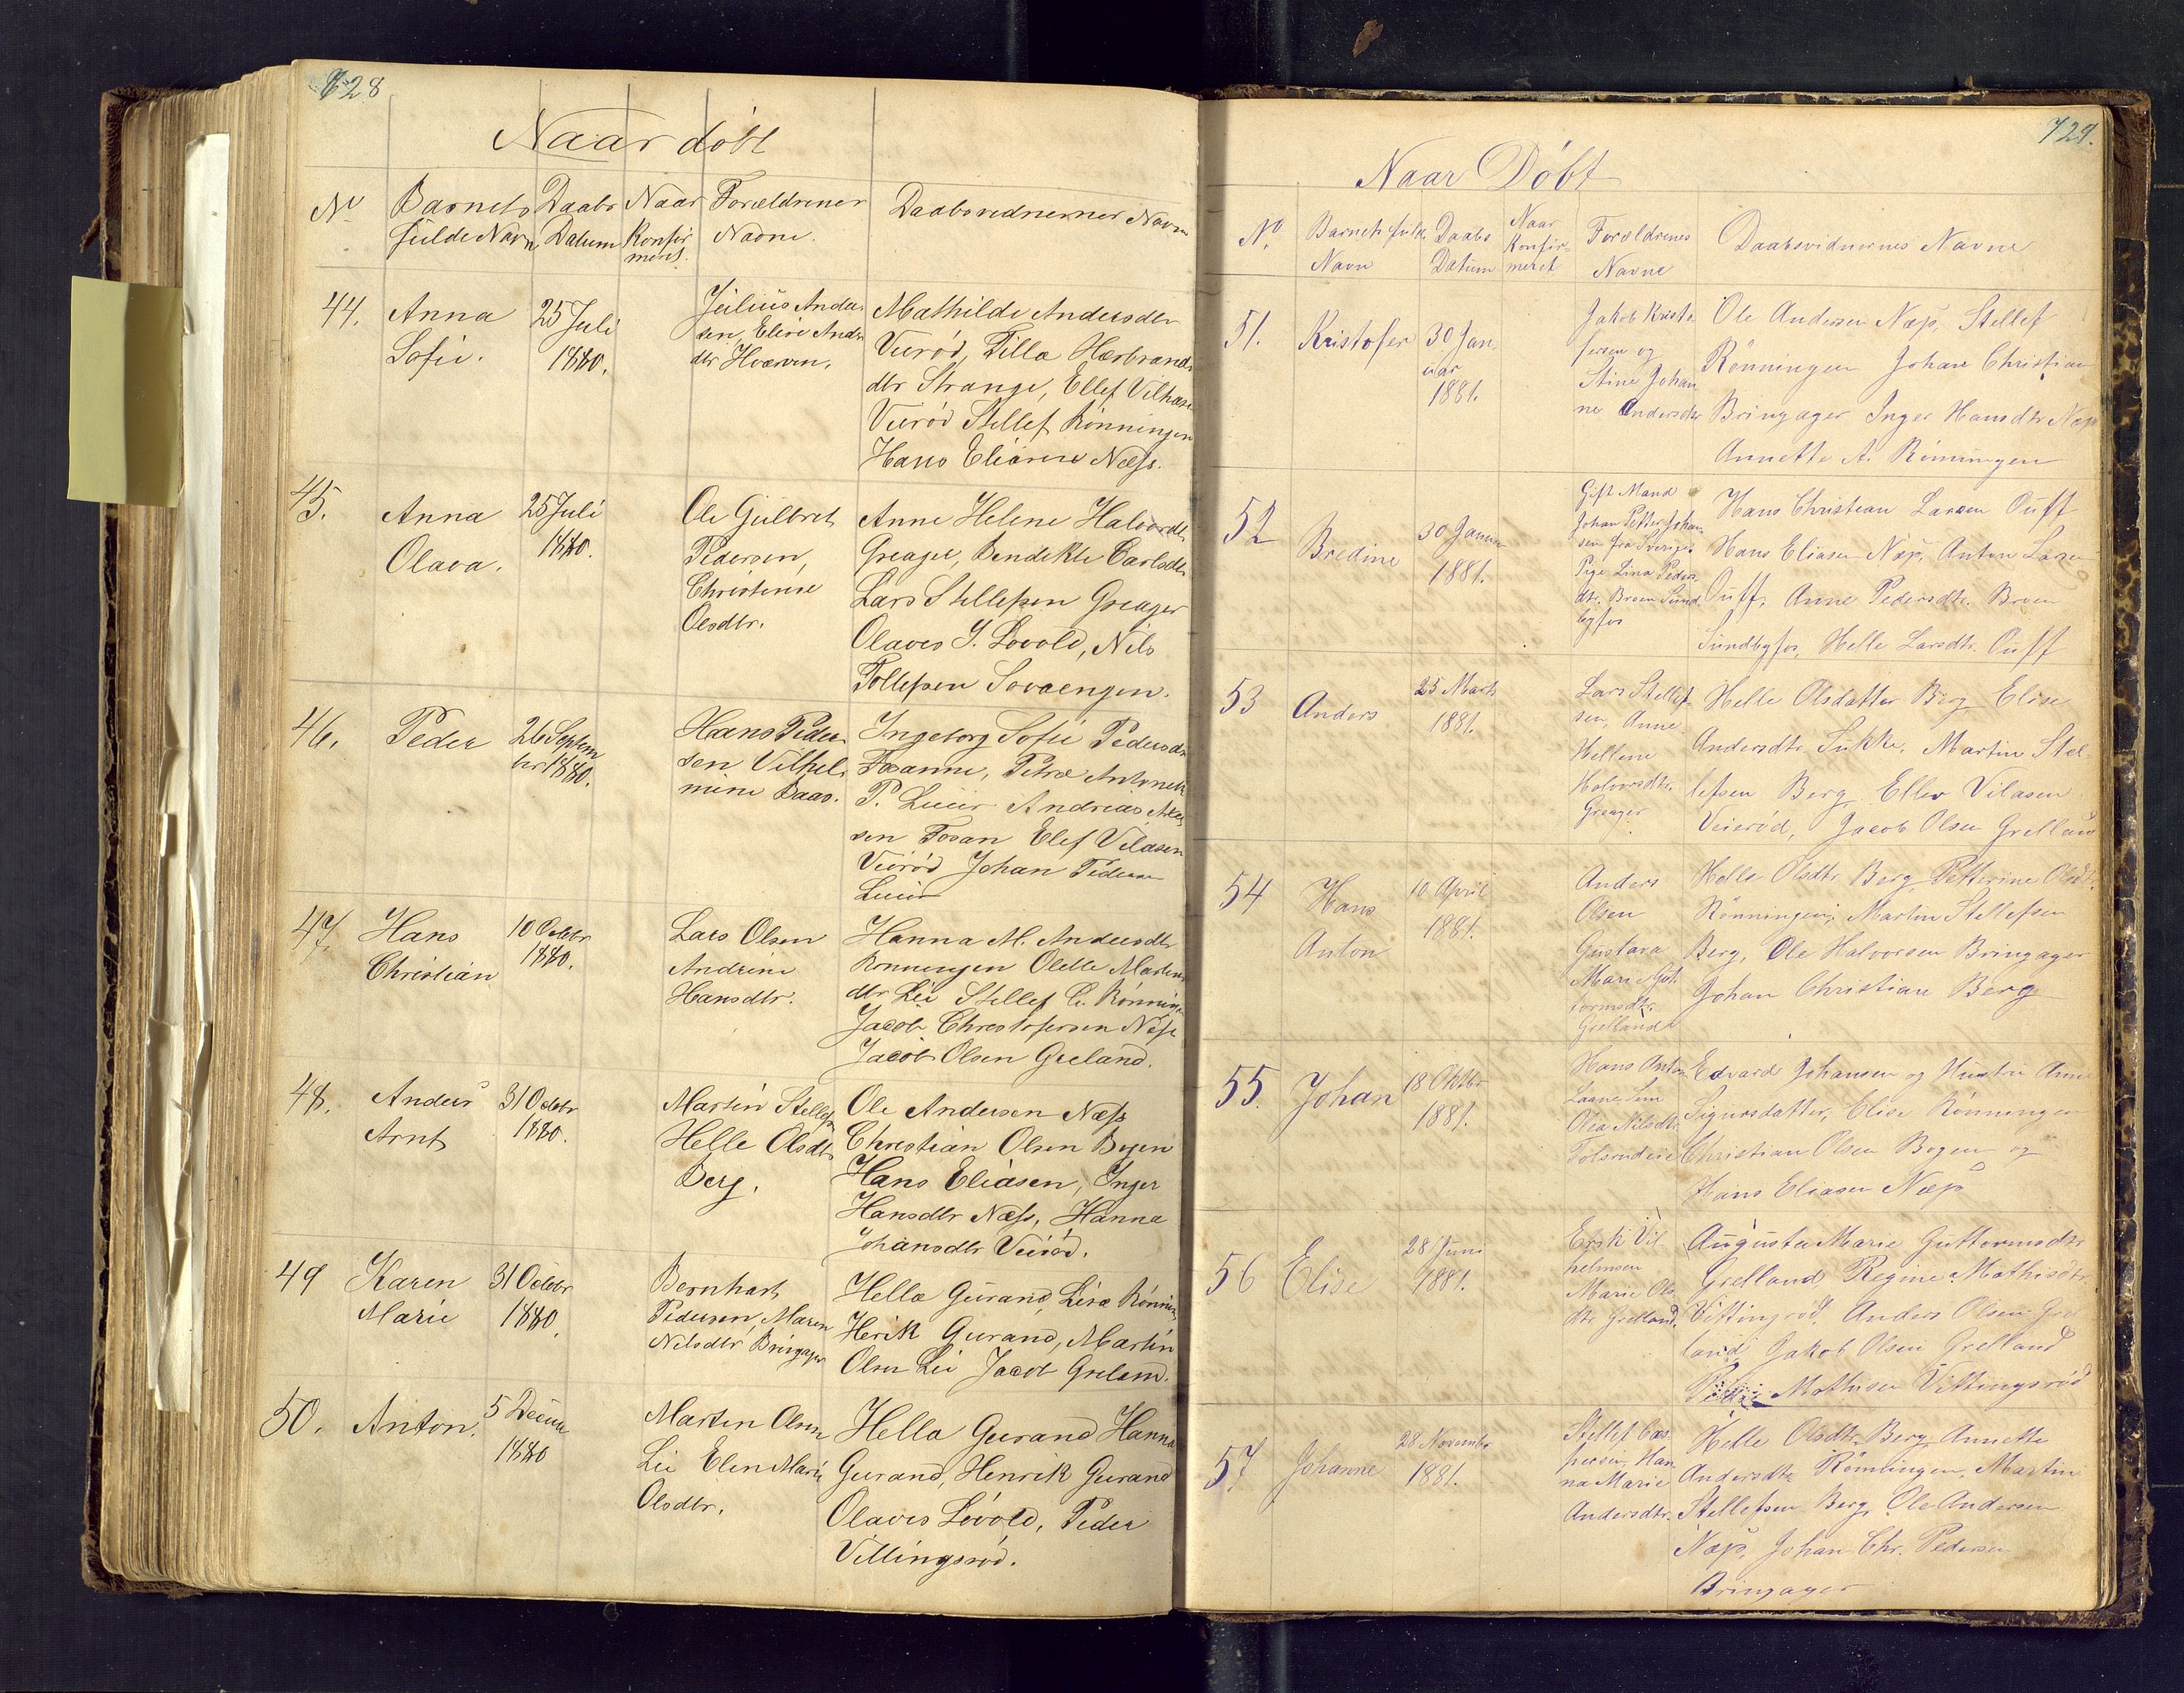 728
Naar döbt
No Barnets fulde Navn Daabs Datum Naar Konfirmert. Forældrenes Navne. Daabsvidnernes Navne
44. Anna Sofie. 25 Juli 1880.
Julius Andersen, Elise Andr dtr Hvarven.
Mathilde Andersdtr
Veirød, Tilla Herbrands
dtr Strange, Ellef Vilhasen
Veirød Stellef Rönningen
Hans Eliasen Næss.
45. Anna Olava. 25 Juli 1880.
Ole Gulbret
Pedersen,
Christense
Olsdtr.
Anne Helene Halvordtr
Greager, Bendikte Carlsdtr
Lars Stellefsen Greager
Olaves J. Lovold, Nils
Tollefsen Sovoengen.
46. Peder 26 Septem ber 1880.
Hans Peder
sen Vilhel
mine Baas.
Ingeborg Sofie Pedersdtr
Fosanne, Petra Antonette
P. Lueir Andreas
sen Fosan Elef Vilasen
Veirød Johan Pedersen
Lueir
47. Hans Christian 10 Octobr 1880.
Lars Olsen
Andrine
Hansdtr.
Hanna M. Andersdtr
Rönningen Olette Martins
dtr Lie Stellef C. Rönningen
Jacob Christofersen Næss
Jacob Olsen Greland.
48. Anders Arnt 31 Octobr 1880.
Martin Stellefs
Helle Olsdtr
Berg.
Ole Andersen Næss
Christian Olsen Bogen
Hans Eliasen, Inger
Hansdtr Næss, Hanna
Johansdtr Veirød.
49 Karen Marie 31 Octobr 1880.
Bernhart
Pedersen, Maren
Nilsdtr Bringager
Hella Gurand, Lise Rönnin
Henrik Gurand, Martin
Olsen Lie Jacob Greland.
50. Anton. 5 Decem 1880
Martin Olsen
Lie Elen Marie
Olsdtr.
Hella Gurand Hanna
Gurand, Henrik Gurand
Olaves Lövold, Peder
Villingsröd.
729.
Naar Döbt
No. Barnets fulde Navn Daabs Datum Naar Konfirmeret Forældrenes Navne Daabsvidnernes Navne
51. Kristofer 30 Januar 1881.
Jakob Kristo
fersen og
Stine Johan
ne Andersdtr
Ole Andersen Næss, Stellef
Rönningen Johan Christian
Bringager Inger Hansdtr Næss
Annette A. Rönningen
52 Bredine 30 Januar 1881.
Gift Mand
Johan Petter Johan
sen fra Sverige.
Pige Lina Peders
dtr. Broen Sund
byfos
Hans Christian Larsen Ouff
Hans Eliasen Næss, Anton Larsen
Ouff, Anne Pedersdtr. Broen
Sundbyfos, Helle Larsdtr. Ouff
53 Anders 25 Marts 1881.
Lars Stellef
sen, Anne
Hellene
Halvorsdtr.
Greager
Helle Olsdatter Berg Elise
Andersdtr. Sukke, Martin Stel-
lefsen Berg Ellev Vilasen
Veierød, Jacob Olsen Grelland
54 Hans Anton 10 April 1881.
Anders
Olsen
Gustava
Marie Gut
tormsdtr.
Grelland
Helle Olsdtr. Berg Petterine Olsdtr.
Rönningen, Martin Stellefsen
Berg, Ole Halvorsen Bringager
Johan Christian Berg
55. Johan 18 Oktbr 1881.
Hans Anton
Olea Nilsdtr.
Edvard Johansen og Hustru Anne
Sigursdatter, Elise Rönningen
Christian Olsen Bogen og
Hans Eliasen Næss
56 Elise 28 Juni 1881.
Erik Vil
helmsen
Marie Ols
dtr Grelland.
Augusta Marie Guttormsdtr
Grelland, Regine Mathisdtr.
Vittingröd, Anders Olsen Gre
land Jakob Olsen Grelland
Mathisen Vittingsröd
57. Johanne 28 November 1881.
Stellef Cas
persen, Han
na Marie
Andersdtr.
Helle Olsdtr. Berg Annette
Andersdtr Römlingen, Martin
Stellefsen Berg, Ole Andersen
Næss, Johan Chr. Pedersen
Bringager